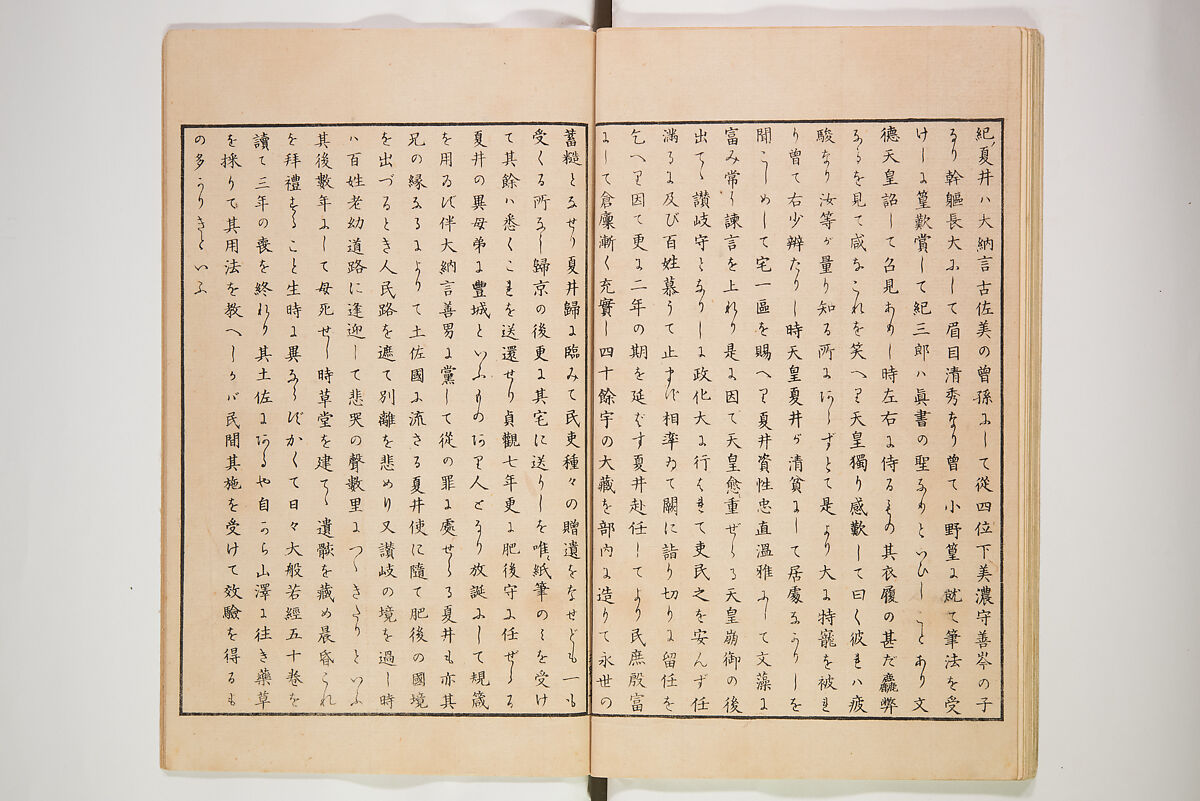 紀夏井ハ大納言古佐美の曾孫にして從四位下美濃守善岑の子
なり幹軀長大にして眉目清秀なり曾て小野篁に就て筆法を受
けしに篁歎賞して紀三郎ハ眞書の聖なりといひしことあり文
德天皇詔して召見ありし時左右に侍るもの其衣履の甚だ麤弊
なるを見て咸なこれを笑へり天皇獨り感歎して曰く彼れハ疲
駿なり汝等が量り知る所にあらずとて是より大に特寵を被れ
り曾て右少辨たりし時天皇夏井が清貧にして居處なかりしを
聞こしめして宅一區を賜へり夏井資性忠直溫雅にして文藻に
富み常に諫言を上れり是に因て天皇愈重ぜらる天皇崩御の後
出でゝ讃岐守となりしに政化大に行はれて吏民之を安んず任
滿るに及び百姓慕うて止まず相率ゐて闕に詣り切りに留任を
乞へり因て更に二年の期を延ばす夏井赴任してより民庶殷富
にして倉廩漸く充實し四十餘宇の大藏を部内に造りて永世の
蓄糙となせり夏井歸に臨みて民吏種々の贈遺をなせども一も
受くる所なし歸京の後更に其宅に送りしを唯紙筆のみを受け
て其餘ハ悉くこれを送還せり貞觀七年更に肥後守に任ぜらる
夏井の異母弟に豐城といふものあり人となり放誕にして規箴
を用ゐず伴大納言善男に黨して從の罪に處せらる夏井も亦其
兄の緣なるによりて土佐國に流さる夏井使に隨て肥後の國境
を出づるとき人民路を遮て別離を悲めり又讃岐の境を過し時
ハ百姓老幼道路に逢迎して悲哭の聲數里につゞきたりといふ
其後數年にして母死せし時草堂を建てゝ遺骸を藏め晨昏これ
を拜禮すること生時に異ならずかくて日々大般若經五十卷を
讀て三年の喪を終れり其土佐にあるや自から山澤に往き藥草
を採りて其用法を教へしかバ民間其施を受けて效驗を得るも
の多かりきといふ